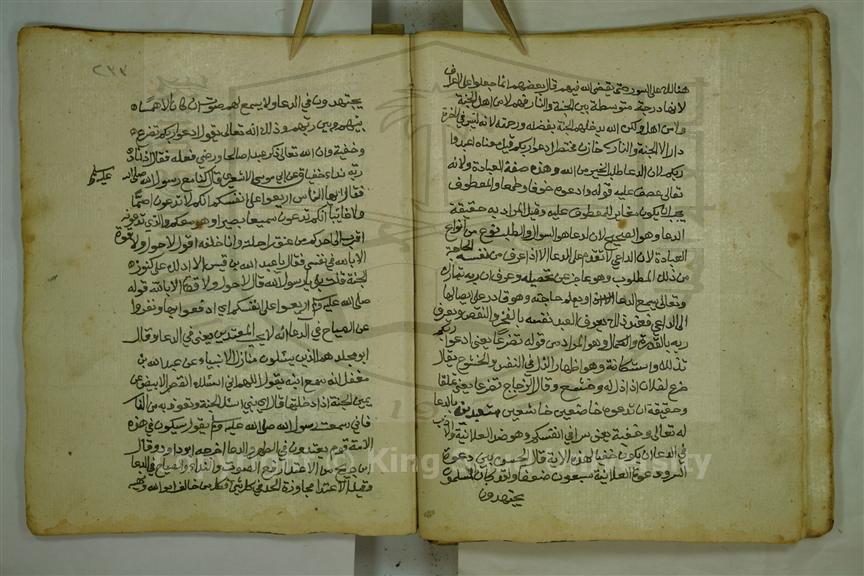 هنالك على السور حتى يقضي الله فيهم قال بعضهم انما جعلوا على الاعراف
لانها درجة متوسطة بين الجنة والنار فهم لا من اهل الجنة
ولا من اهل النار ولكن الله يدخلهم الجنة بفضله ورحمته لانه ليس في الاخرة
دار الا الجنة والنار ادعوا ربكم قيل معناه اعبدوا
ربكم لان الدعا طلب الخير من الله وهذه صفة العبادة ولانه
تعالى عطف عليه قوله وادعوه خوفا وطمعا والمعطوف
يجب ان يكون مغايرا للمعطوف عليه وقيل المراد به حقيقة
الدعا وهو الصحيح لان الدعا هو السوال والطلب نوع من انواع
العبادة لان الداعي لا يقدم على الدعا الا اذا عرف من نفسه الحاجة
من ذلك المطلوب وهو عاجز عن تحصيله وعرف ان ربه تبارك
وتعالى يسمع الدعا ويعلم حاجته وهو قادر على ايصالها
الى الداعي فعند ذلك يعرف العبد نفسه بالعجز والنقص ويعرف
ربه بالقدرة والكمال وهو المراد من قوله تضرعا يعني ادعوا ربكم
تذللا واستكانة وهو اظهار الذل في النفس والخشوع يقال
ضرع لفلان اذا ذل له وخشع وقال الزجاج تضرعا يعني تملقا
وحقيقته ان تدعوه خاضعين خاشعين متعبدين بالدعا
له تعالى وخفية يعني سرا في انفسكم وهو ضد العلانية والادب
في الدعا ان يكون خفيا لهذه الاية قال الحسن بين دعوة
السر ودعوة العلانية سبعون ضعفا ولقد كان المسلمون
يجتهدون
٢٣٣
يجتهدون في الدعا ولا يسمع لهم صوت ان كان الا همسا
بينهم وبين ربهم وذلك انه تعالى يقول ادعوا ربكم تضرعا
وخفية وان الله تعالى ذكر عبدا صالحا ورضي فعله فقال اذ نادى
ربه نداء خفيا وعن ابي موسى الاشعري قال كنا مع رسول الله صلى الله
عليه وسلم
فقال ايها الناس اربعوا على انفسكم انكم لا تدعون اصما
ولا غايبا انكم تدعون سميعا بصيرا وهو معكم والذي تدعونه
اقرب الى احدكم من عنق راحلته وانا خلفه اقول لا حول ولا قوة
الا بالله في نفسي فقال يا عبد الله بن قيس الا ادلك على كنوز
الجنة قلت بلى يا رسول الله قال لا حول ولا قوة الا بالله قوله
صلى الله عليه وسلم اربعوا على انفسكم اي ارفقوا بها
عن الصياح في الدعا انه لا يحب المعتدين يعني في الدعا وقال
ابو مجلز هم الذين يسئلون منازل الانبياء عن عبد الله بن
مغفل انه سمع ابنه يقول اللهم اني اسئلك القصر الابيض عن
يمين الجنة اذا دخلتها قال اي بني اسئل الجنة وتعوذ به من النار
فاني سمعت رسول الله صلى الله عليه وسلم يقول سيكون في هذه
الامة قوم يعتدون في الطهور والدعا اخرجه ابو داود وقال
ابن جريج من الاعتدا رفع الصوت والنداء والصياح في الدعا
وقيل الاعتدا مجاوزة الحد في كل شي فكل من خالف امر الله ونهيه
King University